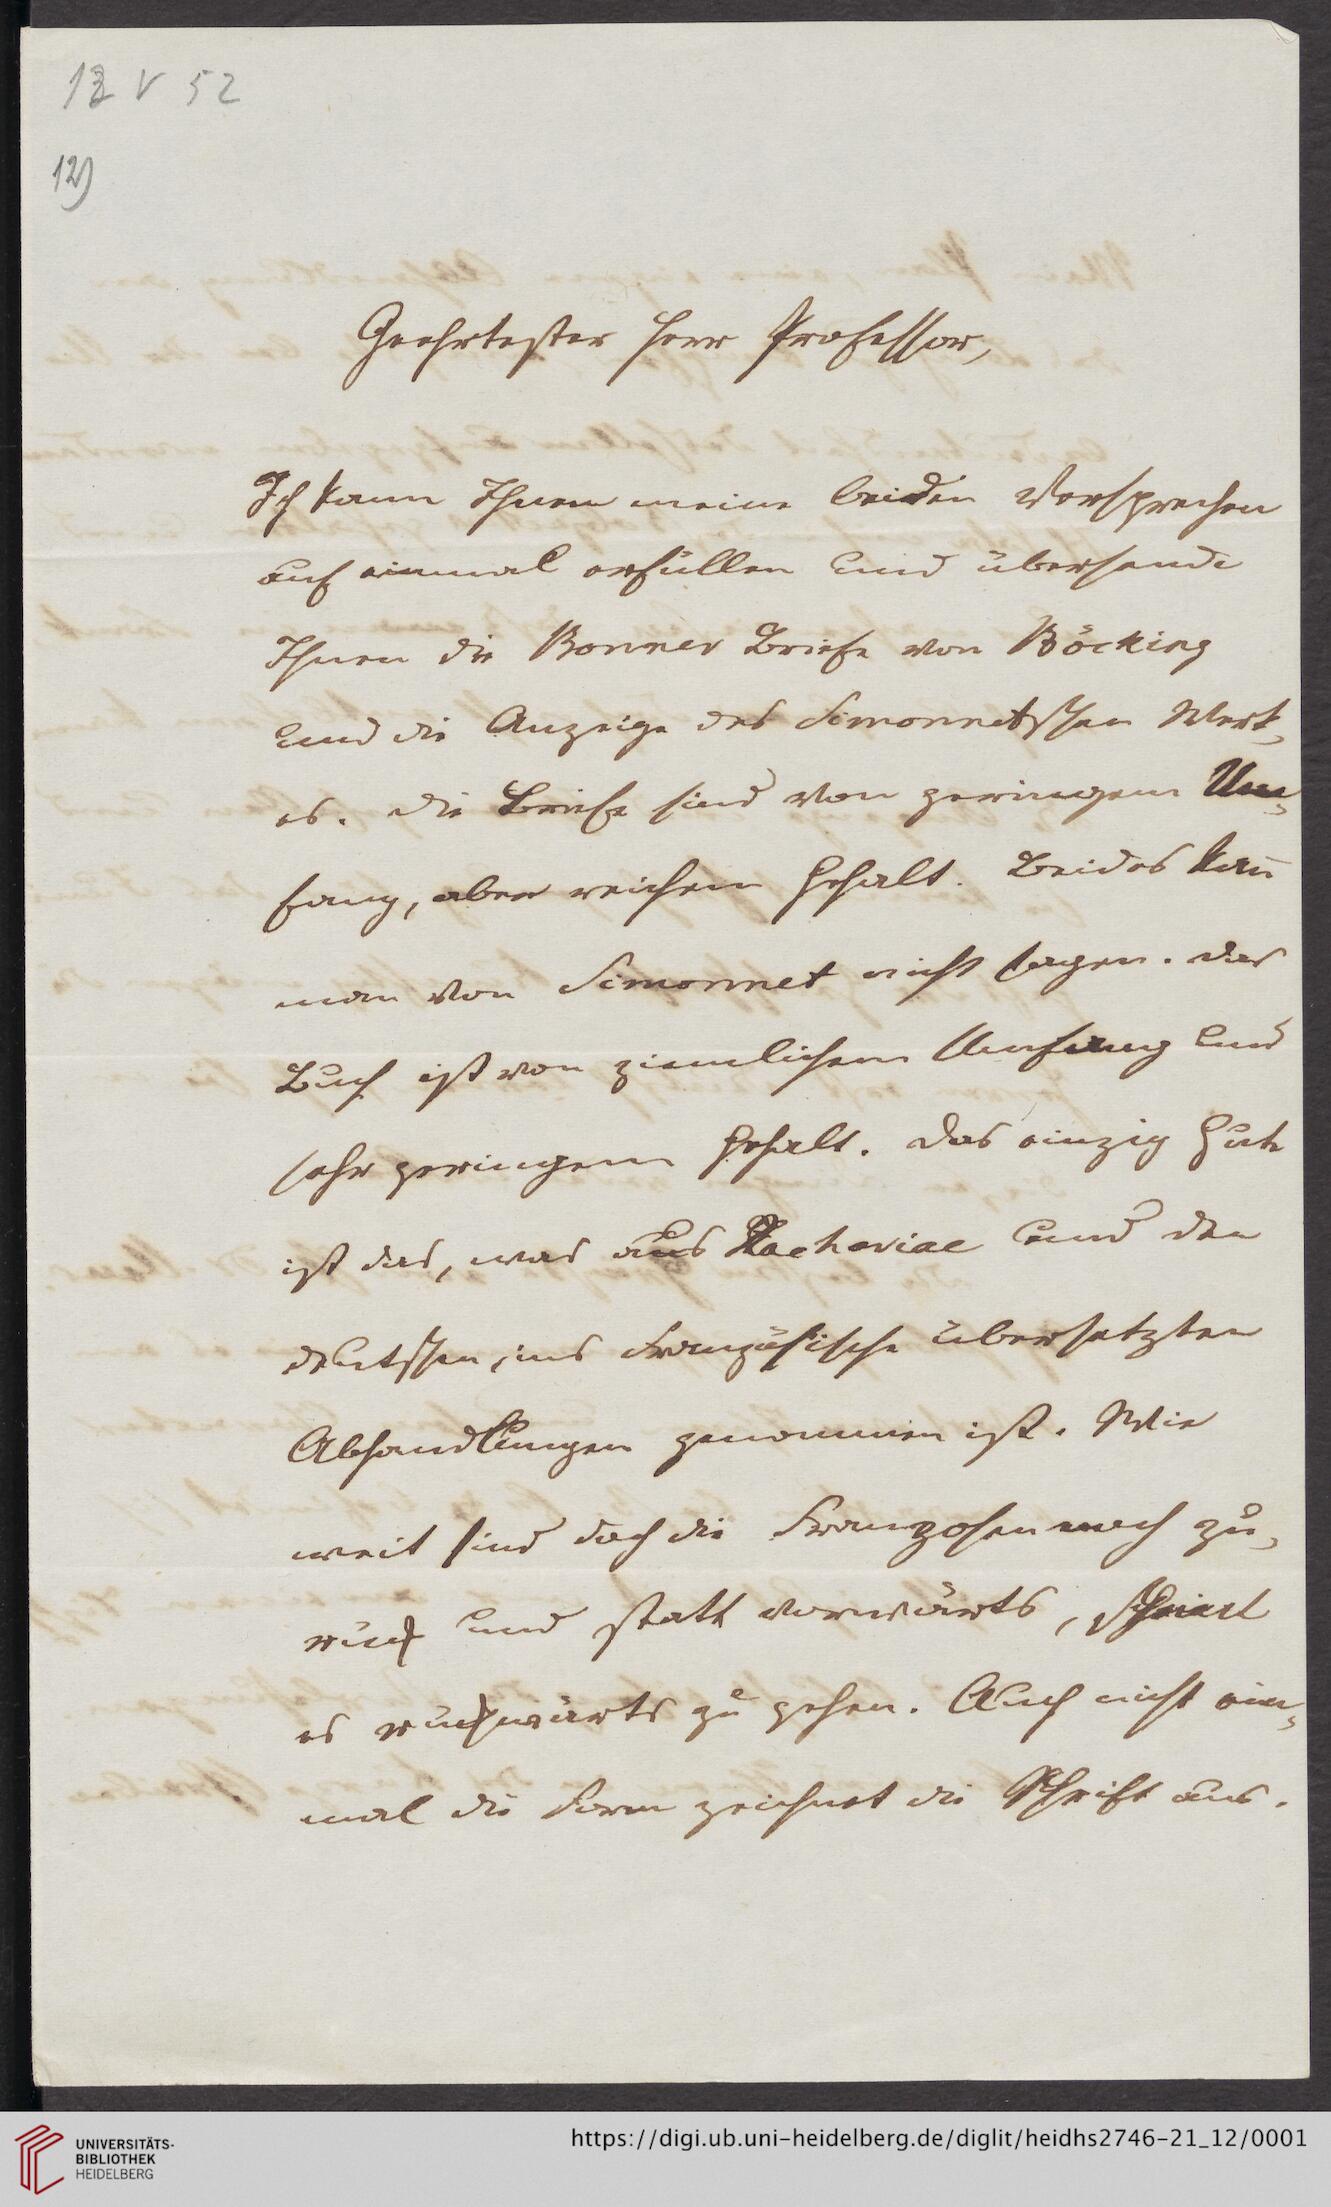 12 V 52
12)
Geehrtester Herr Professor,
Ich kann Ihnen meine beiden Versprechen
auf einmal erfüllen und übersende
Ihnen die Bonner Briefe von Böcking
und die Anzeige des Simonnetschen Werk-
es. Die Briefe sind von geringem Um-
fang, aber reichem Gehalt. Beides kan̄
man von Simonnet nicht sagen. Das
Buch ist von ziemlichem Umfang und
sehr geringem Gehalt. Das einzig Gute
ist das, was aus Zachariae und den
deutschen, ins Französische übersetzten
Abhandlungen genommen ist. Wie
weit sind doch die Franzosen noch zu-
rück und statt vorwärts, scheint
es rückwärts zu gehen. Auch nicht ein-
mal die Form zeichnet die Schrift aus.
UNIVERSITÄTS-
BIBLIOTHEK
HEIDELBERG
https://digi.ub.uni-heidelberg.de/diglit/heidhs2746-21_12/0001